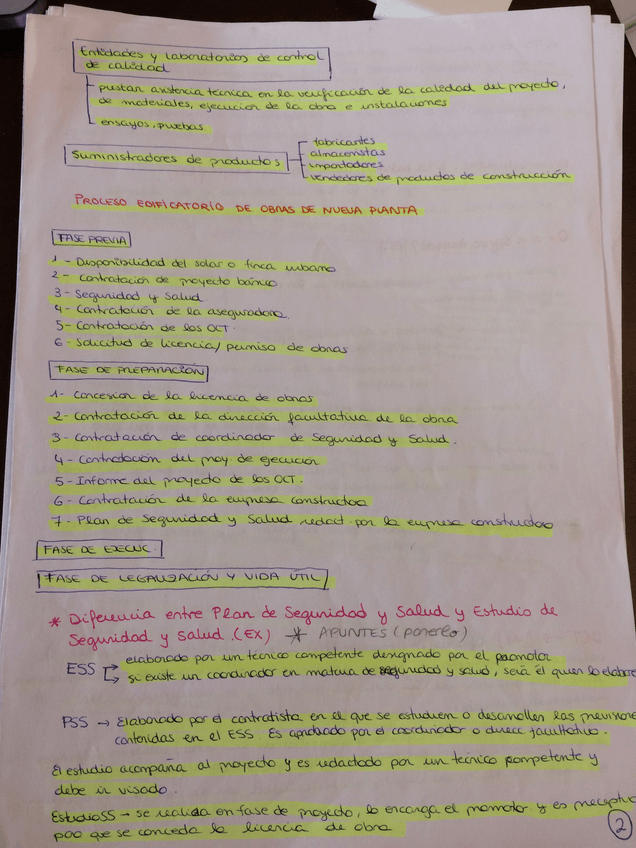 Entidades y laboratorios de control
de calidad
prestan asistencia técnica en la verificación de la calidad del proyecto,
de materiales, ejecución de la obra e instalaciones
ensayos, pruebas
Suministradores de productos
fabricantes
almacenistas
importadores
vendedores de productos de construcción
PROCESO EDIFICATORIO DE OBRAS DE NUEVA PLANTA
FASE PREVIA
1- Disponibilidad del solar o finca urbana
2- Contratación de proyecto básico
3- Seguridad y Salud
4- Contratación de la aseguradora.
5- Contratación de los OCT.
6- Solicitud de licencia/permiso de obras
FASE DE PREPARACIÓN
1- Concesion de la licencia de obras
2- Contratación de la dirección facultativa de la obra
3- Contratación de coordinador de Seguridad y Salud.
4- Contratación del proy. de ejecución
5- Informe del proyecto de los OCT.
6- Contratación de la empresa constructora
7- Plan de Seguridad y Salud redact. por la empresa constructora
FASE DE EJECUC.
FASE DE LEGALIZACIÓN Y VIDA ÚTIL
* Diferencia entre Plan de Seguridad y Salud y Estudio de
Seguridad y Salud. (EX) * APUNTES (ponerlo)
ESS → elaborado por un técnico competente designado por el promotor
→ si existe un coordinador en materia de seguridad y salud, será él quien lo elabore
PSS → Elaborado por el contratista en el que se estudien o desarrollen las previsiones
contenidas en el ESS. Es aprobado por el coordinador o direcc facultativa.
El estudio acompaña al proyecto y es redactado por un técnico competente y
debe ir visado.
EstudioSS → se realiza en fase de proyecto, lo encarga el promotor y es preceptivo
para que se conceda la licencia de obra
2